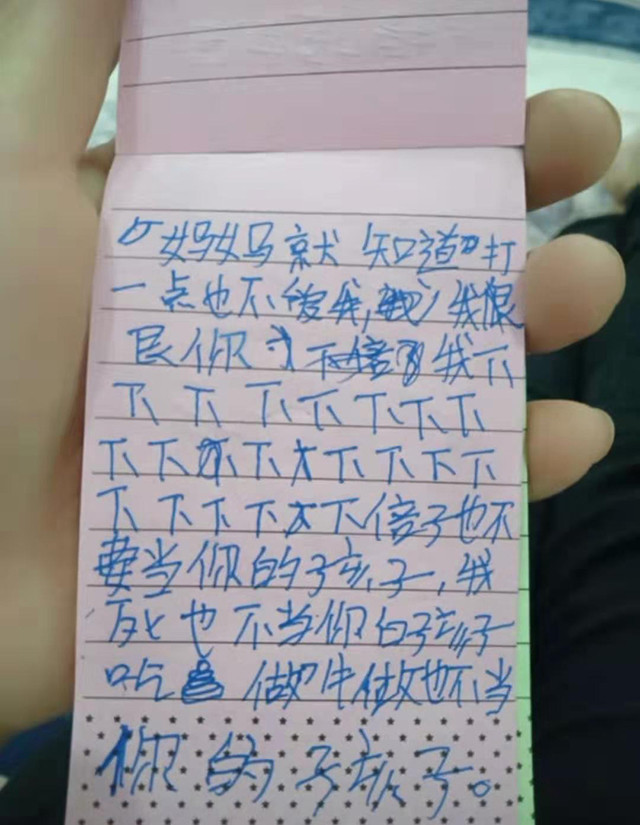 妈妈就知道打
一点也不爱我,我恨
你 不 我下
下下下下下下下
下下下下下下下
下下下下下倍子也不
要当你的孩子,我
死也不当你的孩子
吃 做牛做也不当
你的孩子。